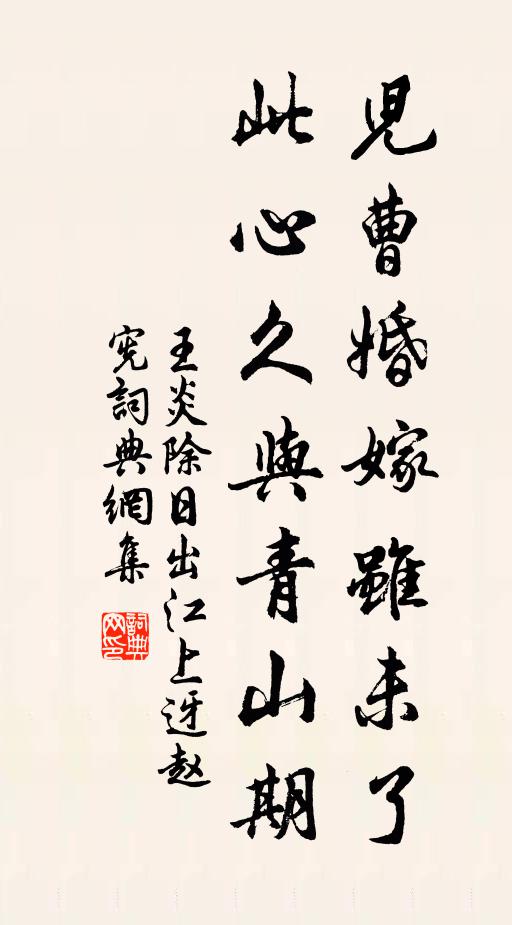 兒曹婚嫁雖未了
此心久與青山期
王炎除日出江上迓赵
宪詞典網集
詞典网印